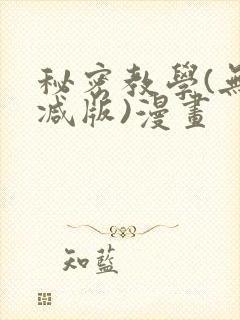 秘密教學(無
减版)漫畫
知藍